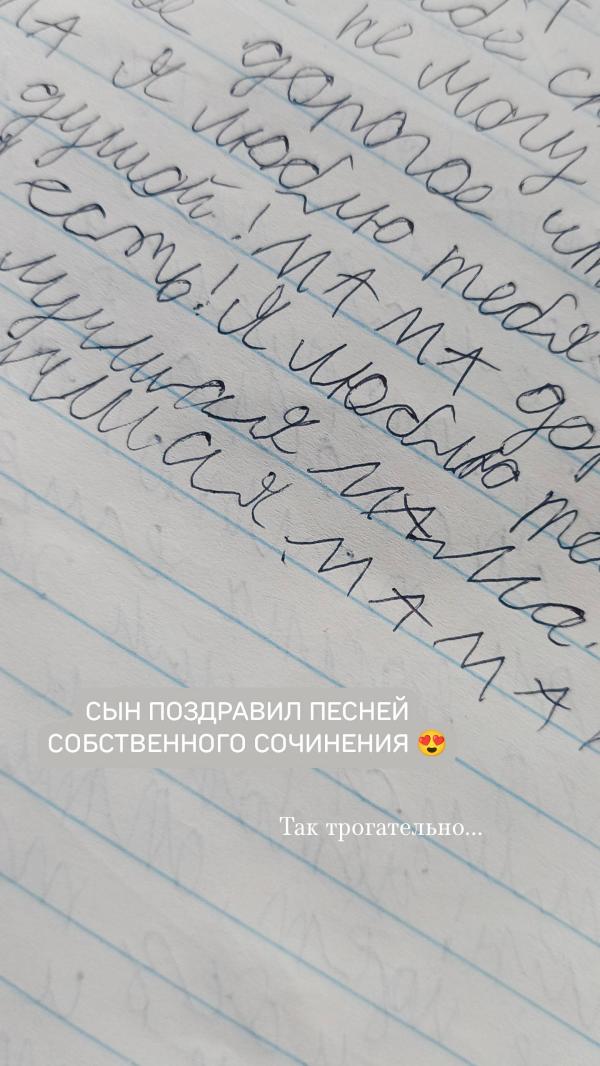 не могу
дорогое
МА Я люблю тебя
душой! МАМА дор
есть! Я люблю те
лучшая МАма.
чшая МАМА
СЫН ПОЗДРАВИЛ ПЕСНЕЙ
СОБСТВЕННОГО СОЧИНЕНИЯ 😍
Так трогательно...